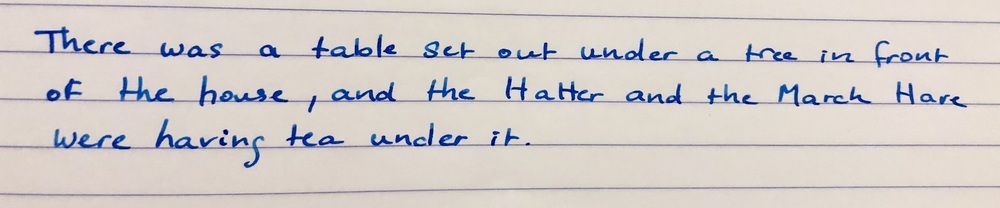 There was a table set out under a tree in front
of the house, and the Hatter and the March Hare
were having tea under it.